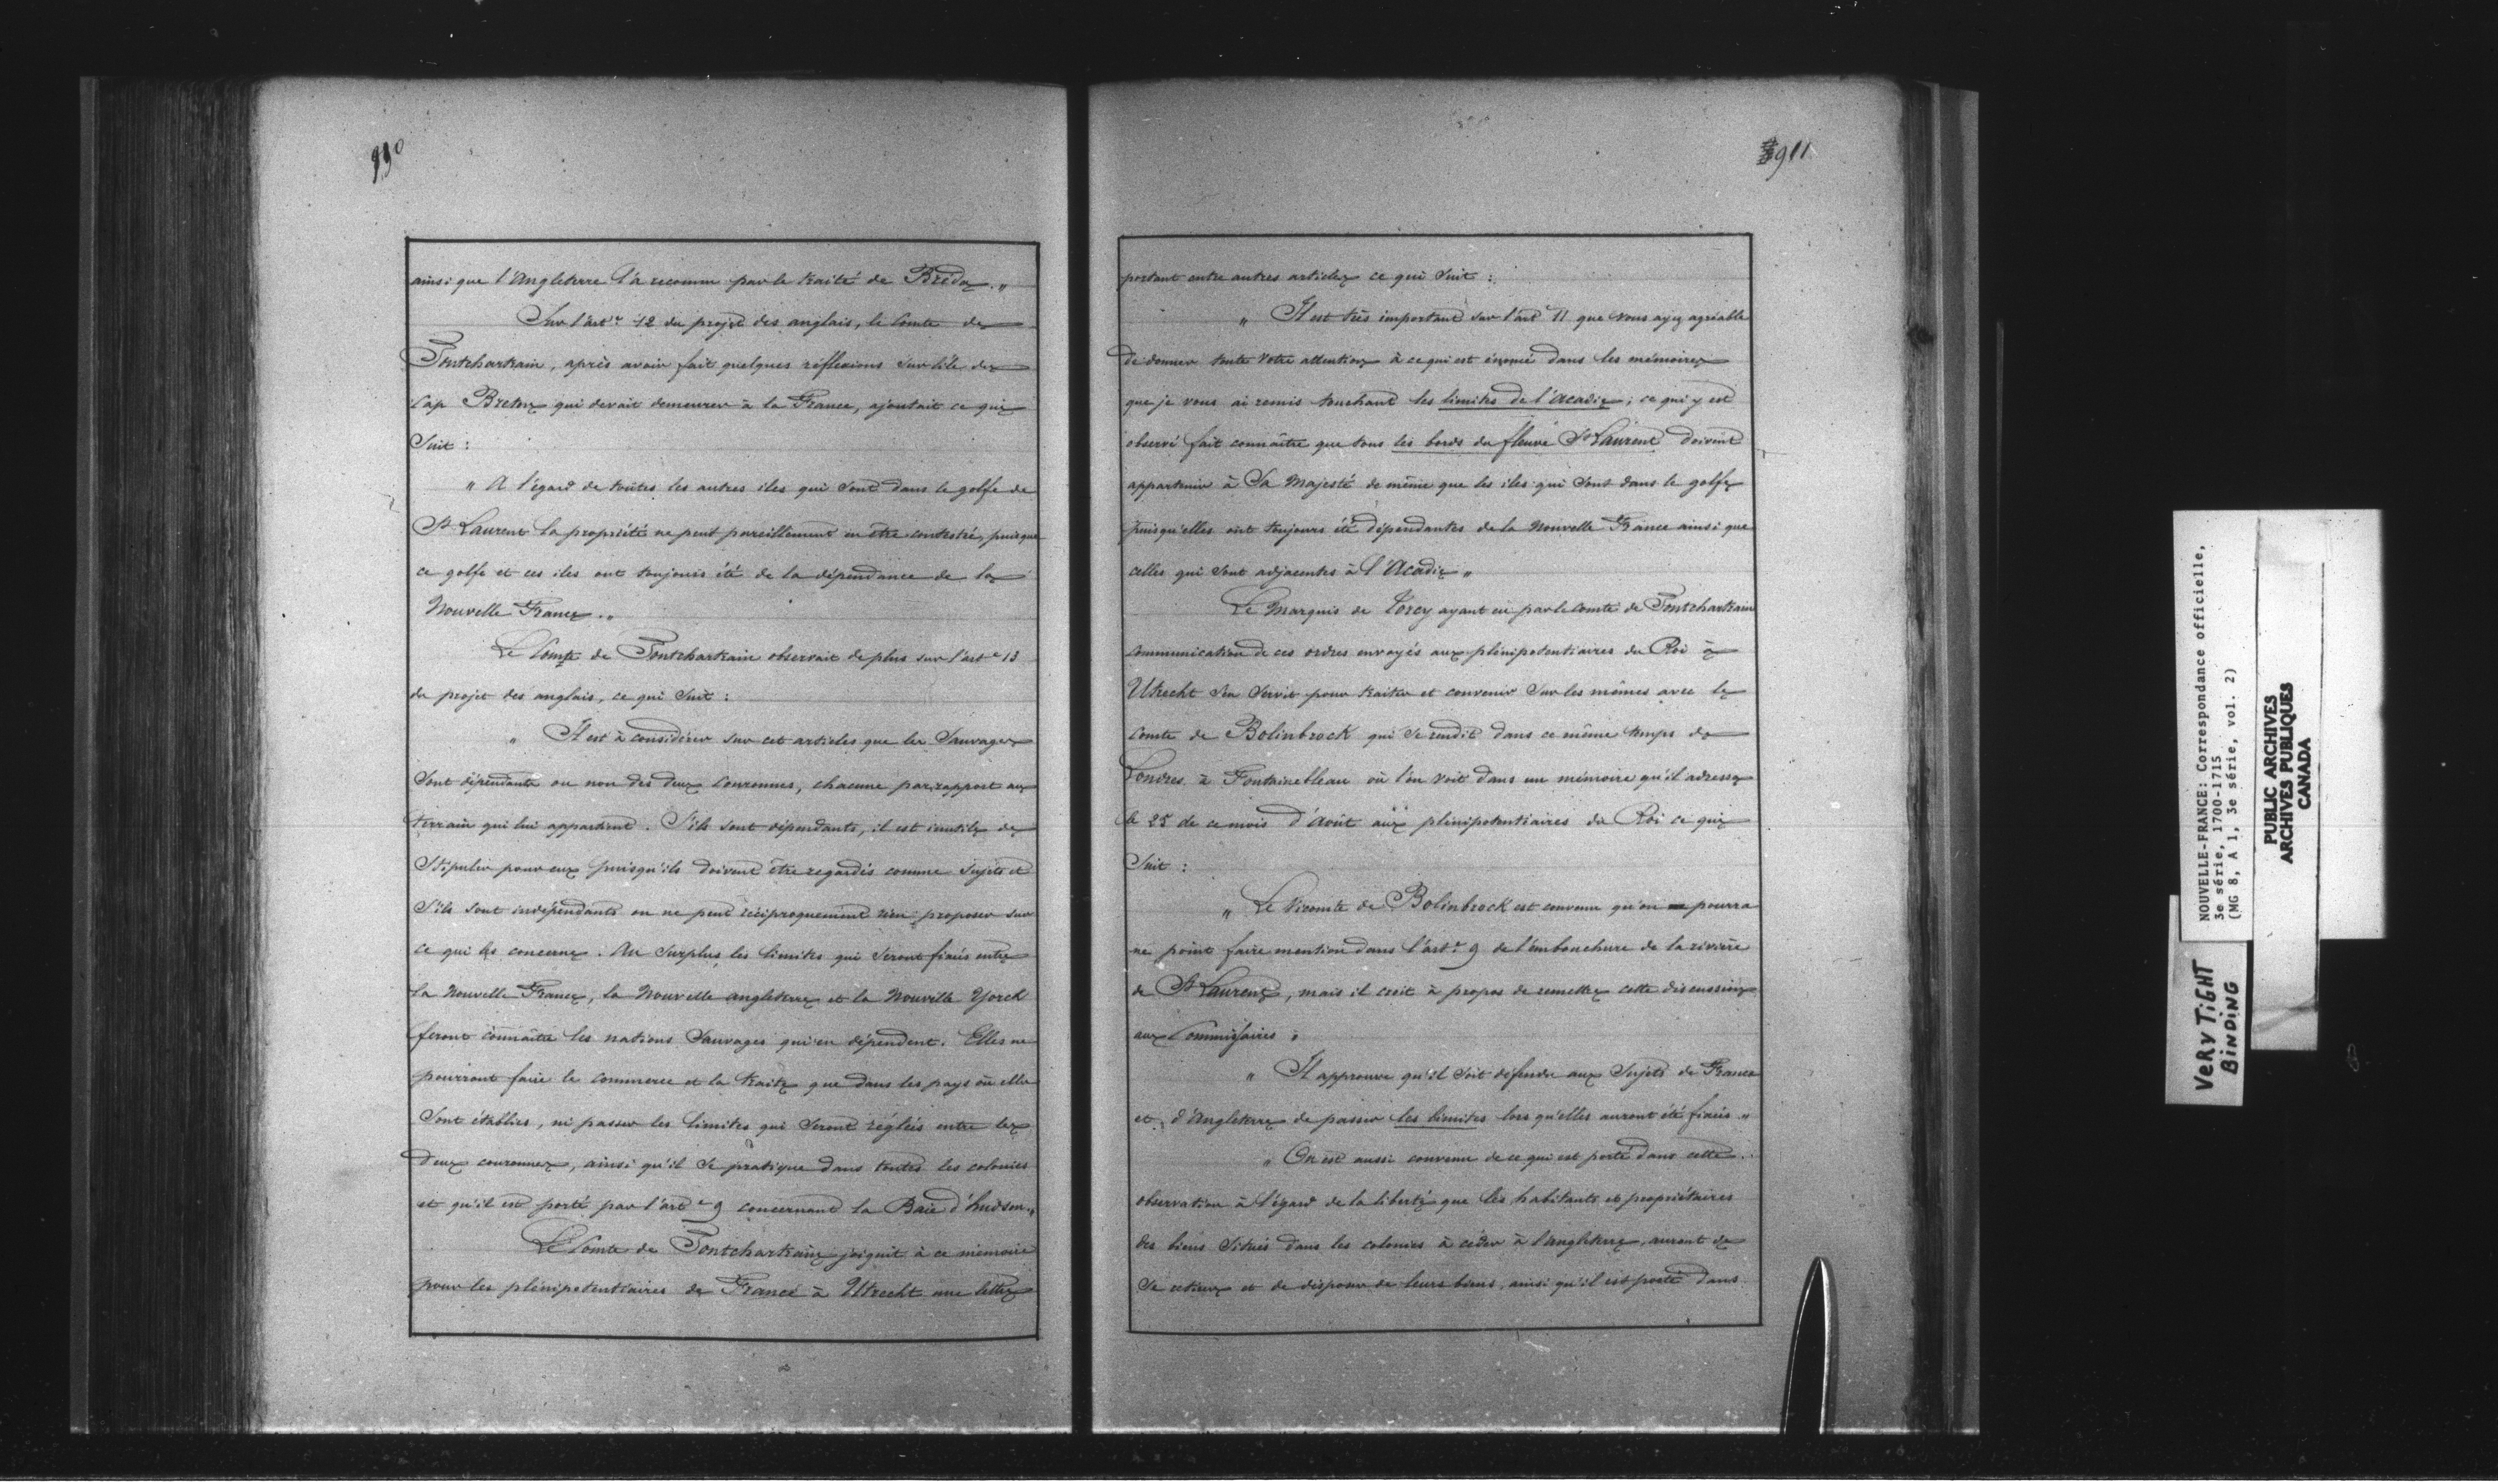 ainsi que l'Angleterre l'a reconnu par le traité de Bréda. "
Sur l'art.e 12 du projet des anglais, le Comte de
Pontchartrain, après avoir fait quelques réflexions sur l'île de
Cap Breton qui devait demeurer à la France, ajoutait ce qui
Suit :
" A l'égard de toutes les autres iles qui sont dans le golfe de
St Laurent la propriété ne peut pareillement en être contestée, puisque
ce golfe et ces iles ont toujours été de la dépendance de la
Nouvelle France. "
Le Comte de Pontchartrain observait de plus sur l'art e 13
du projet des anglais, ce qui suit :
" Il est à considérer sur cet articles que les Sauvages
Sont dépendants ou non des deux Couronnes, chacune par rapport aux
terrain qui lui appartient. S'ils sont dépendants, il est inutile de
Stipuler pour eux puisqu'ils doivent être regardés comme Sujets et
S'ils sont indépendants on ne peut réciproquement rien proposer sur
ce qui les concerne. Au Surplus les limites qui seront fixées entre
la Nouvelle France, la Nouvelle angleterre et la Nouvelle Yorck
feront connaître les nations Sauvages qui en dépendent. Elles ne
pourront faire le commerce et la traite que dans les pays où elles
Sont établies, ni passer les limites qui seront réglées entre les
deux couronnes, ainsi qu'il se pratique dans toutes les colonies
et qu'il est porté par l'art e 9 concernant la Baie d'hudson. "
Le Comte de Pontchartrain joignit à ce mémoire
pour les plénipotentiaires de France à Utrecht une lettre
911
portant entre autres articles ce qui suit :
" Il est très important sur l'art e 11 que vous ayez agréable
de donner toute votre attention à ce qui est énoncé dans les mémoires
que je vous ai remis touchant les limites de l'Acadie ; ce qui y est
observé fait connaître que tous les bords du fleuve St Laurent doivent
appartenir à Sa Majesté de même que les iles qui sont dans le golfe
puisqu'elles ont toujours été dépendantes de la Nouvelle France ainsi que
celles qui sont adjacentes à l'Acadie "
Le Marquis de Torcy ayant eu par le Comte de Pontchartrain
Communication de ces ordres envoyés aux plénipotentiaires du Roi à
Utrecht s'en servit pour traiter et convenir sur les mêmes avec le
Comte de Bolinbrock qui se rendit dans ce même temps de
Londres à Fontainebleau où l'on voit dans un mémoire qu'il adressa
le 25 de ce mois d'Août aux plénipotentiaires du Roi ce qui
Suit :
" Le Vicomte de Bolinbrock est convenu qu'on pourra
ne point faire mention dans l'art.e 9 de l'embouchure de la rivière
de St Laurent, mais il croit à propos de remettre cette discussion
aux Commissaires "
" Il approuve qu'il soit défendu aux Sujets de France
et d'Angleterre de passer les limites lors qu'elles auront été fixées "
" On est aussi convenu de ce qui est porté dans cette
observation à l'égard de la liberté que les habitants et propriétaires
des biens situés dans les colonies à céder à l'angleterre, auront de
Se retirer et de disposer de leurs biens, ainsi qu'il est porté dans
NOUVELLE-FRANCE: Correspondance officielle,
3e série, 1700-1715
(MG 8, A 1, 3e série, vol. 2)
PUBLIC ARCHIVES
ARCHIVES PUBLIQUES
CANADA
VERY TiGHT
BiNDiNG